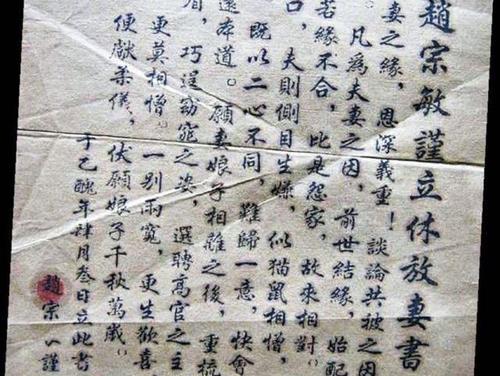 趙宗敏謹立休放妻書
妻之緣，恩深義重！談論共被之因
。凡為夫妻之因，前世結緣，始配
若緣不合，比是怨家，故來相對。
口，夫則側目生嫌，似猫鼠相憎，
既以二心不同，難歸一意，快會
本道。願妻娘子相離之後，重梳
眉，巧逞窈窕之姿，選聘高官之主
更莫相憎。一別兩寬，更生歡喜
便獻柔儀，伏願娘子千秋萬歲。
于乙醜年肆月叁日立此書
趙宗謹